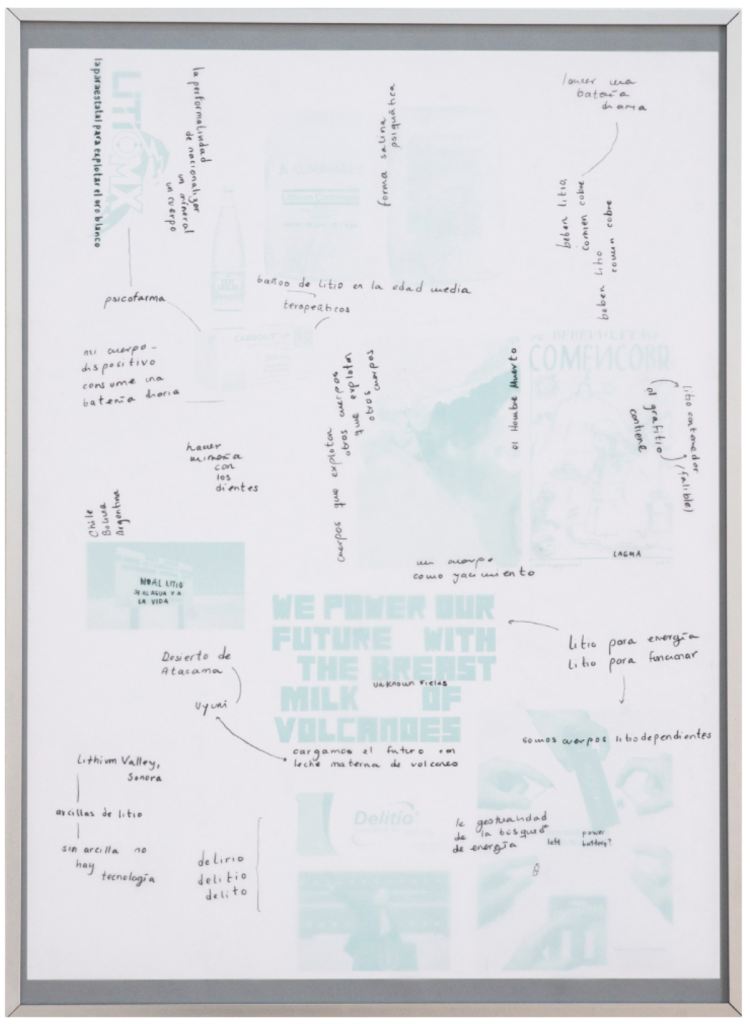 la paraestatal para explotar el oro blanco
LITIOMX
la performatividad
de nacionalizar
un mineral
un cuerpo
forma salina
psiquiátrica
lamer una
batería
diaria
beben litio
comen cobre
beben litio
comen cobre
psicofarma
baños de litio en la edad media
terapeúticos
mi cuerpo-
dispositivo
consume una
batería diaria
CARBONAT
cuerpos que explotan
otros cuerpos
que explotan
otros cuerpos
el Hombre Muerto
BEBEN LITIO
COMENCOBR
litio contenedor
(falible)
el grafitio
contiene
LAGMA
hacer
minería
con
los
dientes
Chile
Bolivia
Argentina
NO AL LITIO
SI AL AGUA Y A
LA VIDA
un cuerpo
como yacimiento
WE POWER OUR
FUTURE WITH
THE BREAST
MILK OF
VOLCANOES
UNKNOWN FIELDS
litio para energía
litio para funcionar
Desierto de
Atacama
Uyuni
cargamos el futuro con
leche materna de volcanes
somos cuerpos litiodependientes
Lithium Valley,
Sonora
arcillas de litio
sin arcilla no
hay
tecnología
Delitio
delirio
delitio
delito
la gestualidad
de la búsqueda
de energía
left
power
battery?